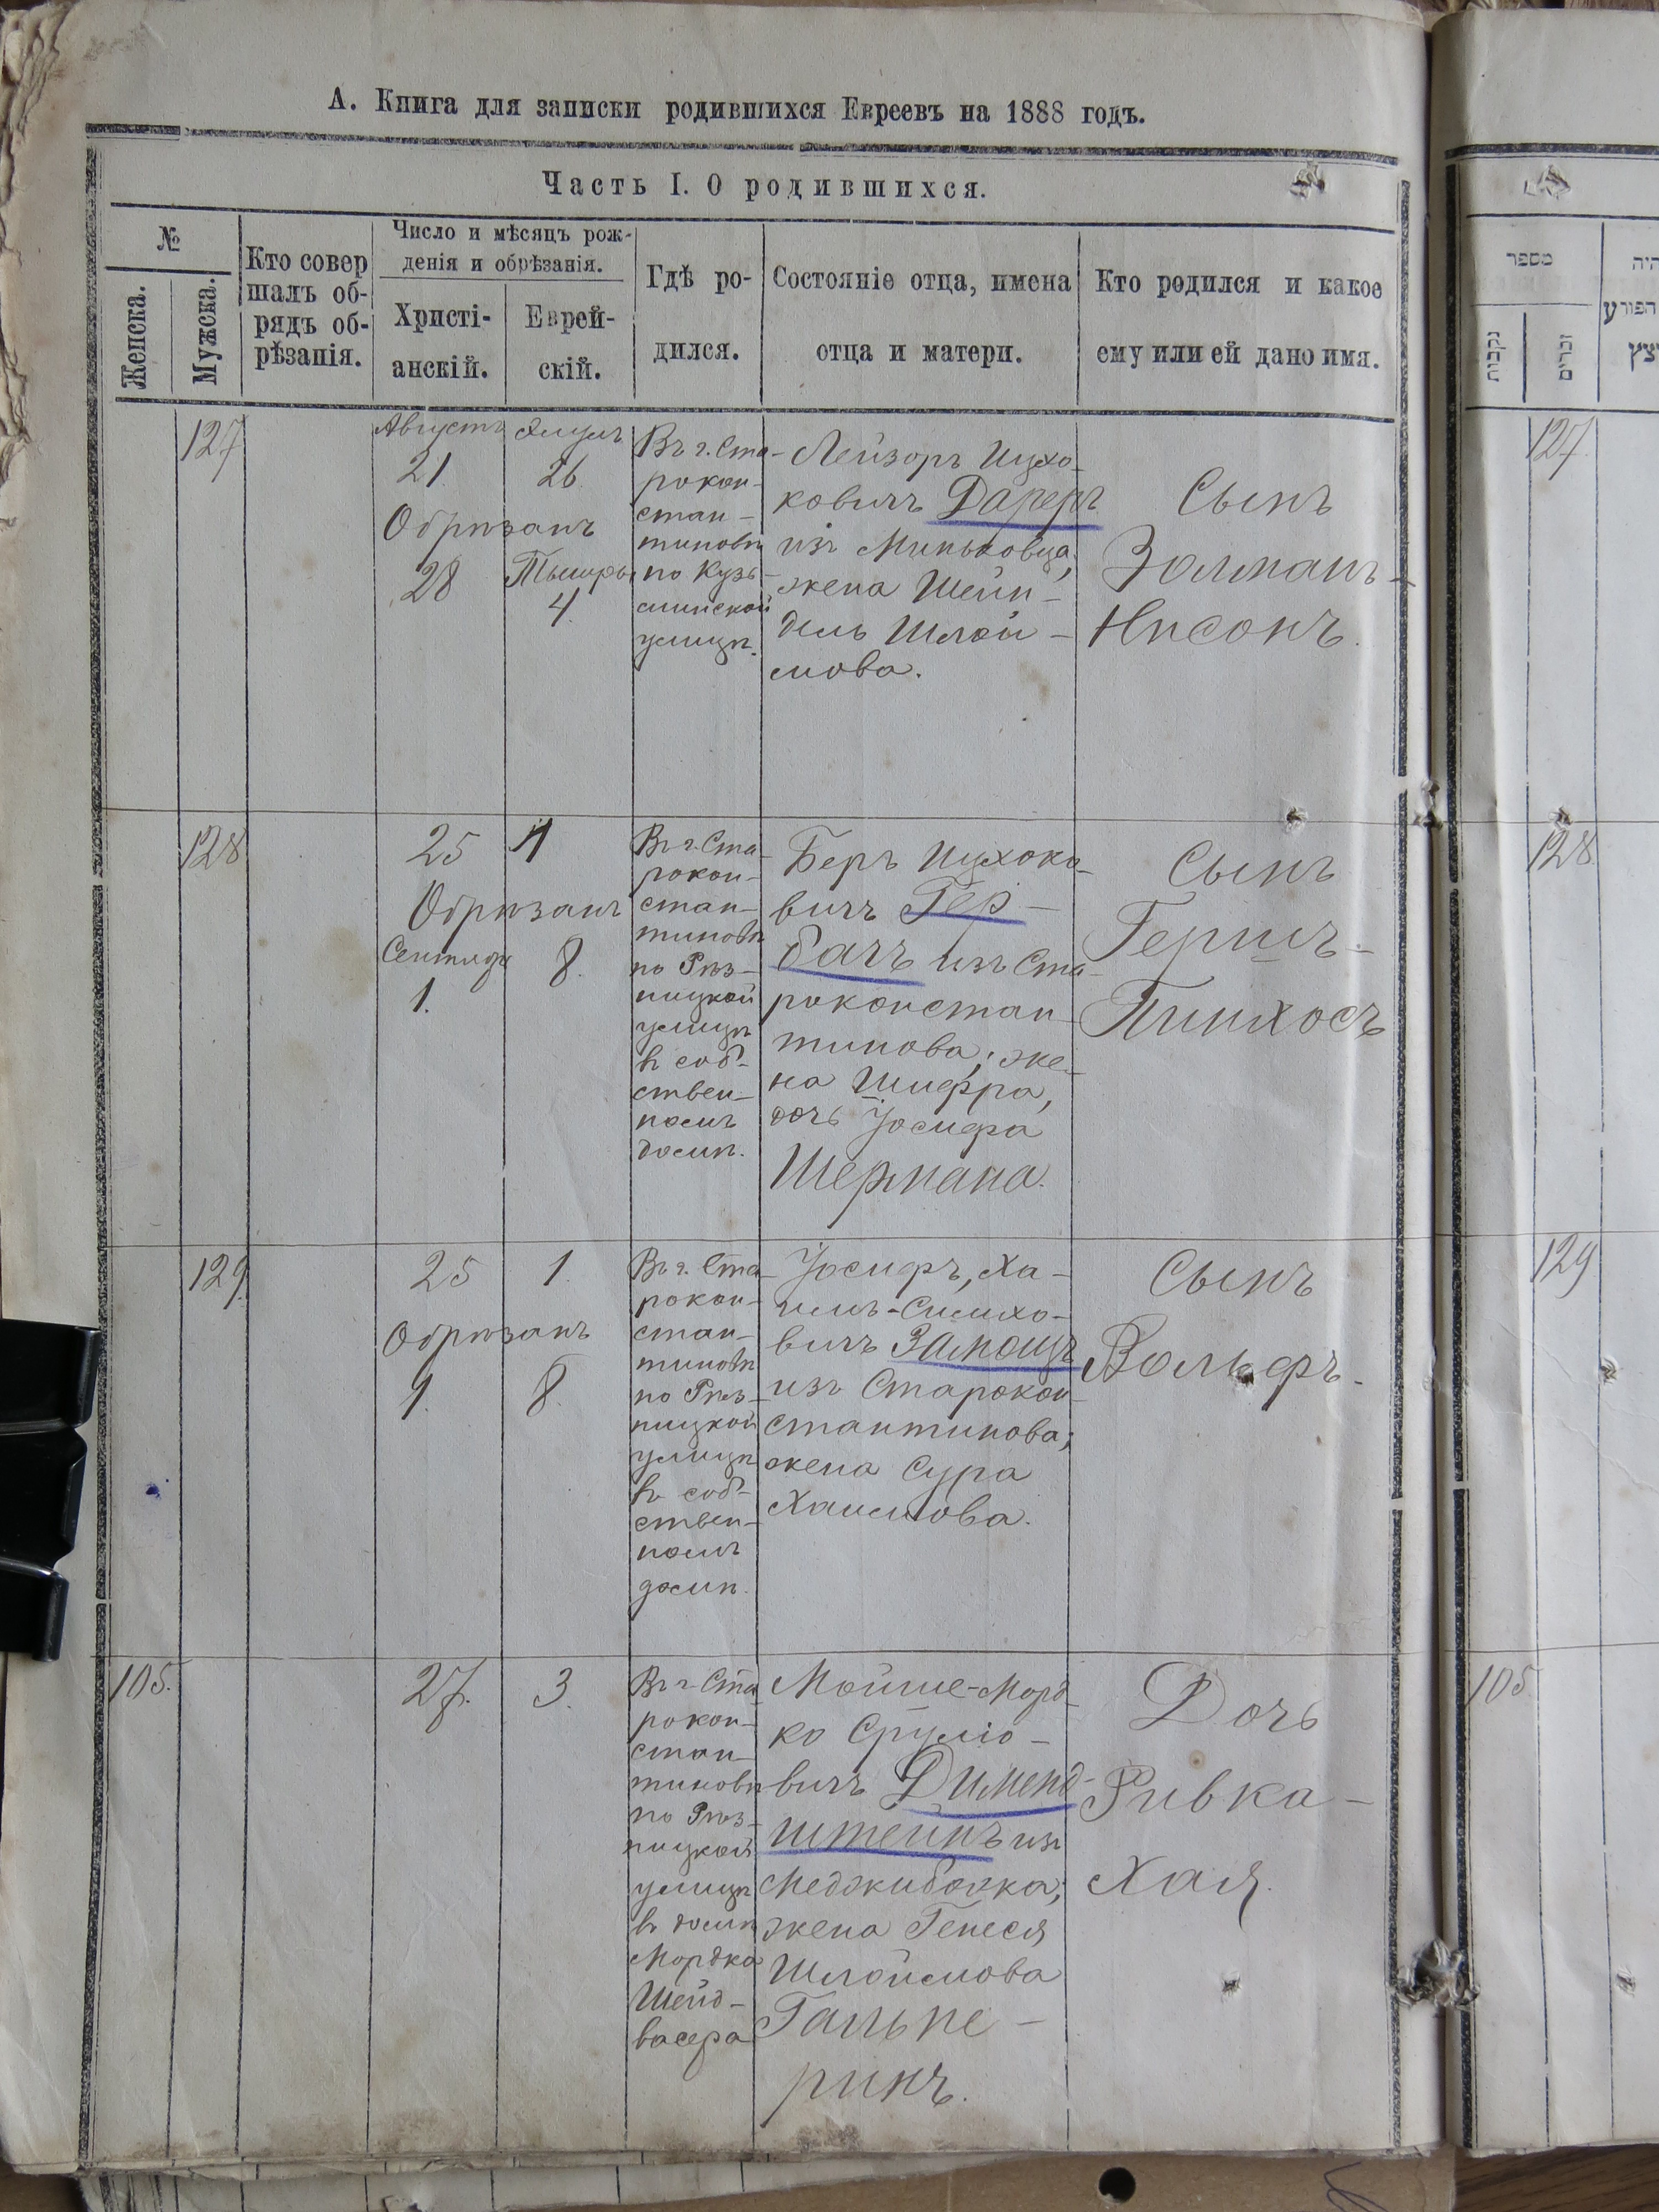 А. Книга для записки родившихся Евреевъ на 1888 годъ.
Часть I. О родившихся.
№
Женска.
Мужска.
Кто совер
шалъ об-
рядъ об-
рѣзанія.
Число и мѣсяцъ рож-
денія и обрѣзанія.
Христі-
анскій.
Еврей-
скій.
Гдѣ ро-
дился.
Состояніе отца, имена
отца и матери.
Кто родился и какое
ему или ей дано имя.
127
Августъ
21.
Элулъ
26
Обрѣзанъ
28
Тышры
4.
Въ г. Ста-
рокон-
стан-
тиновѣ
по Кузь-
минской
улицѣ.
Лейзоръ Ицхо-
ковичъ Дареръ
изъ Миньковца,
жена Шейн-
дель Шлой-
мова.
Сынъ
Золманъ-
Нисонъ.
128
25
1
Обрѣзанъ
Сентябр
1.
8.
Въ г. Ста-
рокон-
стан-
тиновѣ
по Рѣз-
ницкой
улицѣ
въ соб-
ствен-
номъ
домѣ.
Беръ Ицхоко-
вичъ Гер-
бачъ изъ Ста-
роконстан-
тинова; же-
на Шифра,
дочь Іосифа
Шермана.
Сынъ
Гершъ-
Пинхосъ
129.
25
1.
Обрѣзанъ
1.
8.
Въ г. Ста-
рокон-
стан-
тиновѣ
по Рѣз-
ницкой
улицѣ
въ соб-
ствен-
номъ
домѣ.
Іосифъ, Ха-
имъ-Симхо-
вичъ Замощъ
изъ Старокон-
стантинова;
жена Сура
Хаимова.
Сынъ
Вольфъ.
105.
27.
3.
Въ г. Ста
рокон-
стан-
тиновѣ
по Рѣз-
ницкой
улицѣ
въ домѣ
Мордка
Шейд-
васера
Мойше-Морд-
ко Срулю-
вичъ Дименд-
штейнъ изъ
Меджибожа;
жена Генеся
Шлоймова
Гальпе-
ринъ.
Дочь
Ривка-
Хая.
מספר
נקבות
זכרים
היה
הפורע
127.
128.
129
105